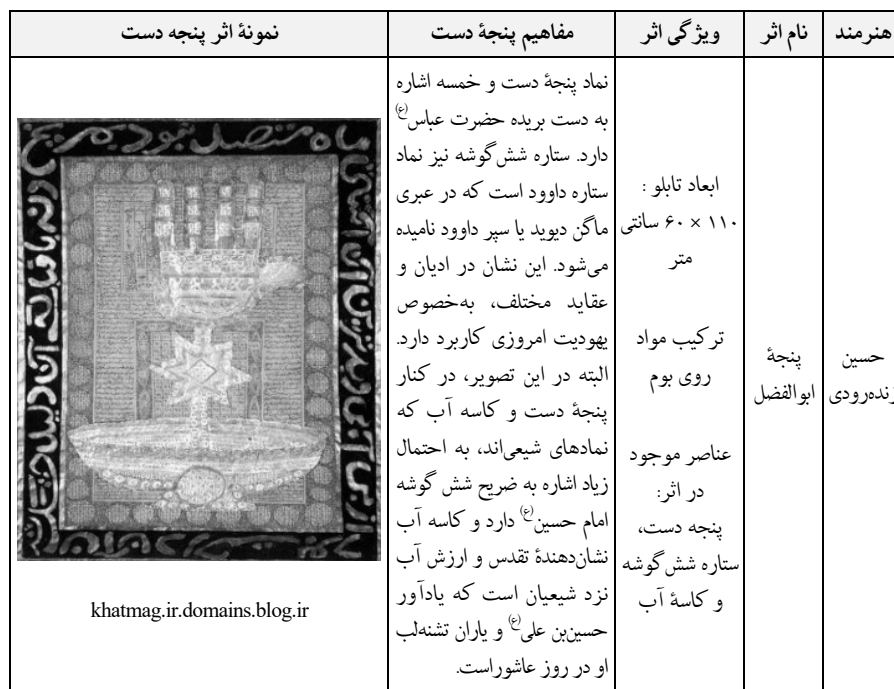 هنرمند
نام اثر
ویژگی اثر
مفاهیم پنجۀ دست
نمونۀ اثر پنجه دست
حسین
زنده‌رودی
پنجۀ
ابوالفضل
ابعاد تابلو :
۱۱۰ × ۶۰ سانتی
متر
ترکیب مواد
روی بوم
عناصر موجود
در اثر:
پنجه دست،
ستاره شش‌گوشه
و کاسۀ آب
نماد پنجۀ دست و خمسه اشاره
به دست بریده حضرت عباس(ع)
دارد. ستاره شش‌گوشه نیز نماد
ستاره داوود است که در عبری
ماگن دیوید یا سپر داوود نامیده
می‌شود. این نشان در ادیان و
عقاید مختلف، به‌خصوص
یهودیت امروزی کاربرد دارد.
البته در این تصویر، در کنار
پنجۀ دست و کاسه آب که
نمادهای شیعی‌اند، به احتمال
زیاد اشاره به ضریح شش گوشه
امام حسین(ع) دارد و کاسه آب
نشان‌دهندۀ تقدس و ارزش آب
نزد شیعیان است که یادآور
حسین‌بن علی(ع) و یاران تشنه‌لب
او در روز عاشوراست.
ماه متصل بود بهم
khatmag.ir.domains.blog.ir